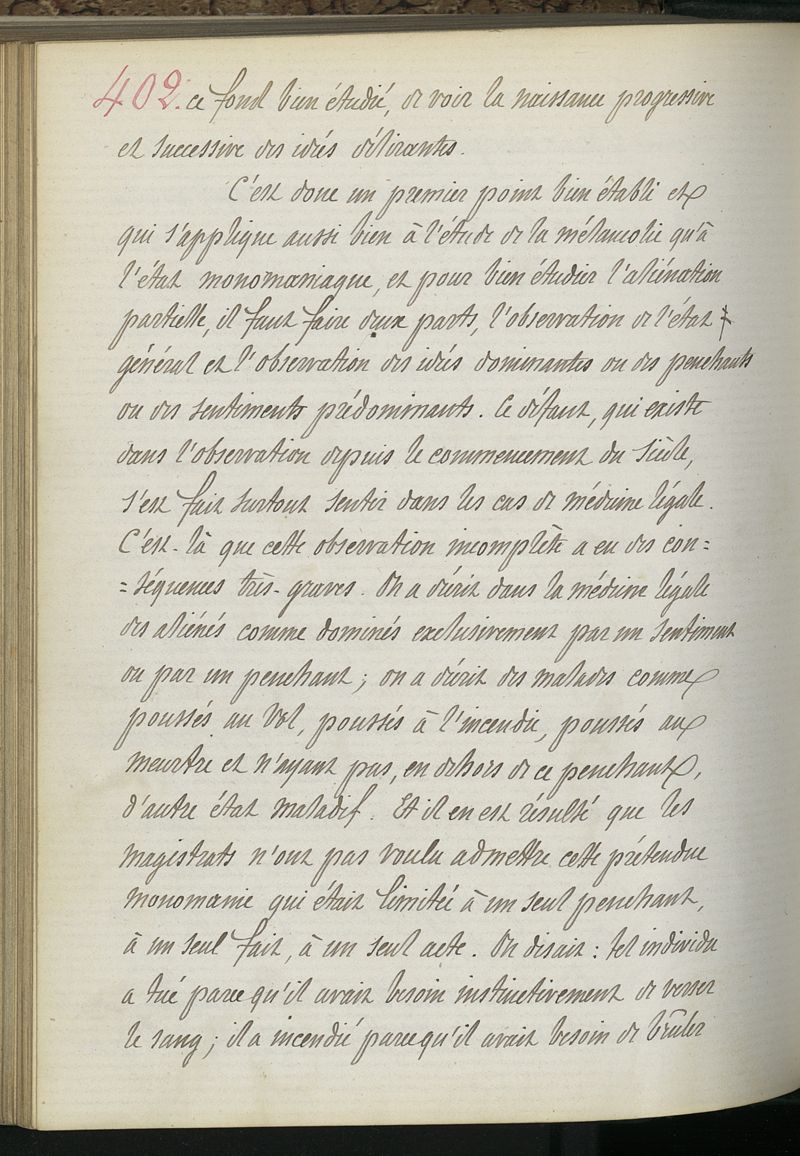 402. ce fond bien étudié, de voir la naissance progressive
et successive des idées délirantes.
C'est donc un premier point bien établi et
qui s'applique aussi bien à l'étude de la mélancolie qu'à
l'état monomaniaque, et pour bien étudier l'aliénation
partielle, il faut faire deux parts, l'observation de l'état
général et l'observation des idées dominantes ou des penchants
ou des sentiments prédominants. Ce défaut, qui existe
dans l'observation depuis le commencement du siècle,
s'est fait surtout sentir dans les cas de médecine légale.
C'est-là que cette observation incomplète a eu des con=
=séquences très-graves. On a décrit dans la médecine légale
des aliénés comme dominés exclusivement par un sentiment
ou par un penchant; on a décrit des malades comme
poussés au vol, poussés à l'incendie, poussés au
meurtre et n'ayant pas, en dehors de ce penchant,
d'autre état maladif. Et il en est résulté que les
magistrats n'ont pas voulu admettre cette prétendue
monomanie qui était limitée à un seul penchant,
à un seul fait, à un seul acte. On disait: tel individu
a tué parce qu'il avait besoin instinctivement de verser
le sang; il a incendié parce qu'il avait besoin de brûler